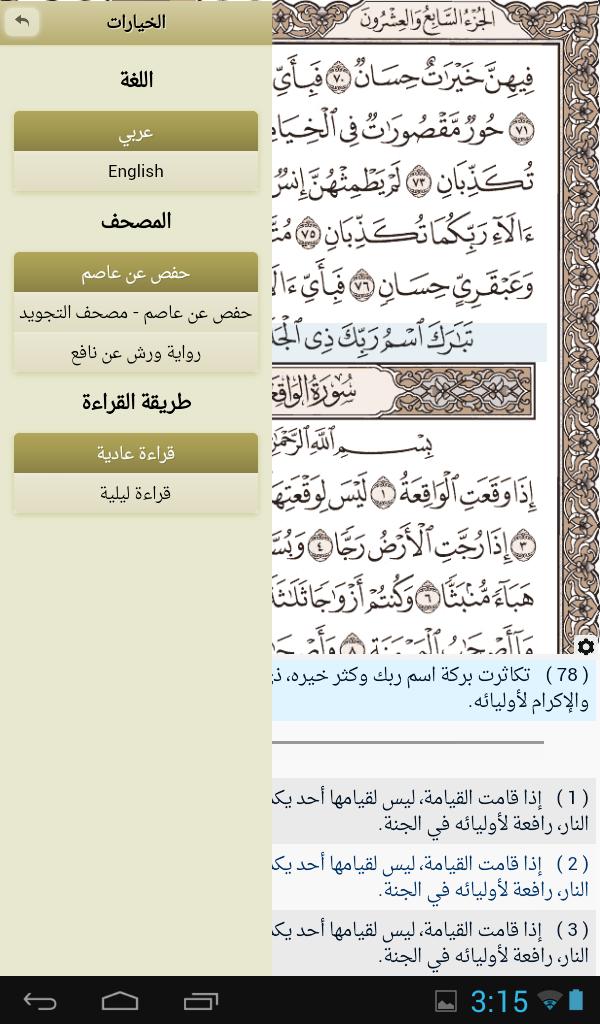 الخيارات
اللغة
عربي
English
المصحف
حفص عن عاصم
حفص عن عاصم - مصحف التجويد
رواية ورش عن نافع
طريقة القراءة
قراءة عادية
قراءة ليلية
الجزء السابع والعشرون
فِيهِنَّ خَيْرَٰتٌ حِسَانٌ ٧٠ فَبِأَيِّ
حُورٌ مَّقْصُورَٰتٌ فِي ٱلْخِيَامِ ٧١
تُكَذِّبَانِ ٧٣ لَمْ يَطْمِثْهُنَّ إِنسٌ
ءَالَآءِ رَبِّكُمَا تُكَذِّبَانِ ٧٥
وَعَبْقَرِيٍّ حِسَانٍ ٧٦ فَبِأَيِّ
تَبَٰرَكَ ٱسْمُ رَبِّكَ ذِي
سُورَةُ
بِسْمِ ٱللَّهِ
إِذَا وَقَعَتِ ٱلْوَاقِعَةُ ١ لَيْسَ لِوَقْعَتِهَا
٣ إِذَا رُجَّتِ ٱلْأَرْضُ رَجًّا ٤
هَبَآءً مُّنۢبَثًّا ٦ وَكُنتُمْ أَزْوَٰجًا
( 78 ) تكاثرت بركة اسم ربك وكثر خيره،
والإكرام لأوليائه.
( 1 ) إذا قامت القيامة، ليس لقيامها أحد
النار، رافعة لأوليائه في الجنة.
( 2 ) إذا قامت القيامة، ليس لقيامها أحد
النار، رافعة لأوليائه في الجنة.
( 3 ) إذا قامت القيامة، ليس لقيامها أحد
النار، رافعة لأوليائه في الجنة.
3:15